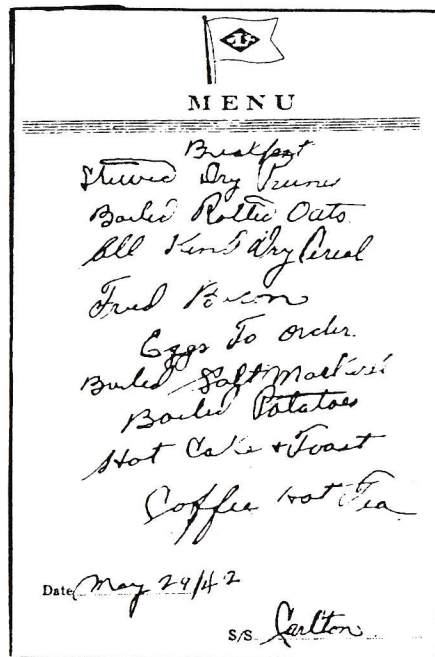 MENU
Breakfast
Stewed Dry Prunes
Boiled Rolled Oats
All Kind Dry Cereal
Fried Bacon
Eggs To order
Boiled Salt Mackerel
Boiled Potatoes
Hot Cake + Toast
Coffee Hot Tea
Date May 29/42
S/S Carlton